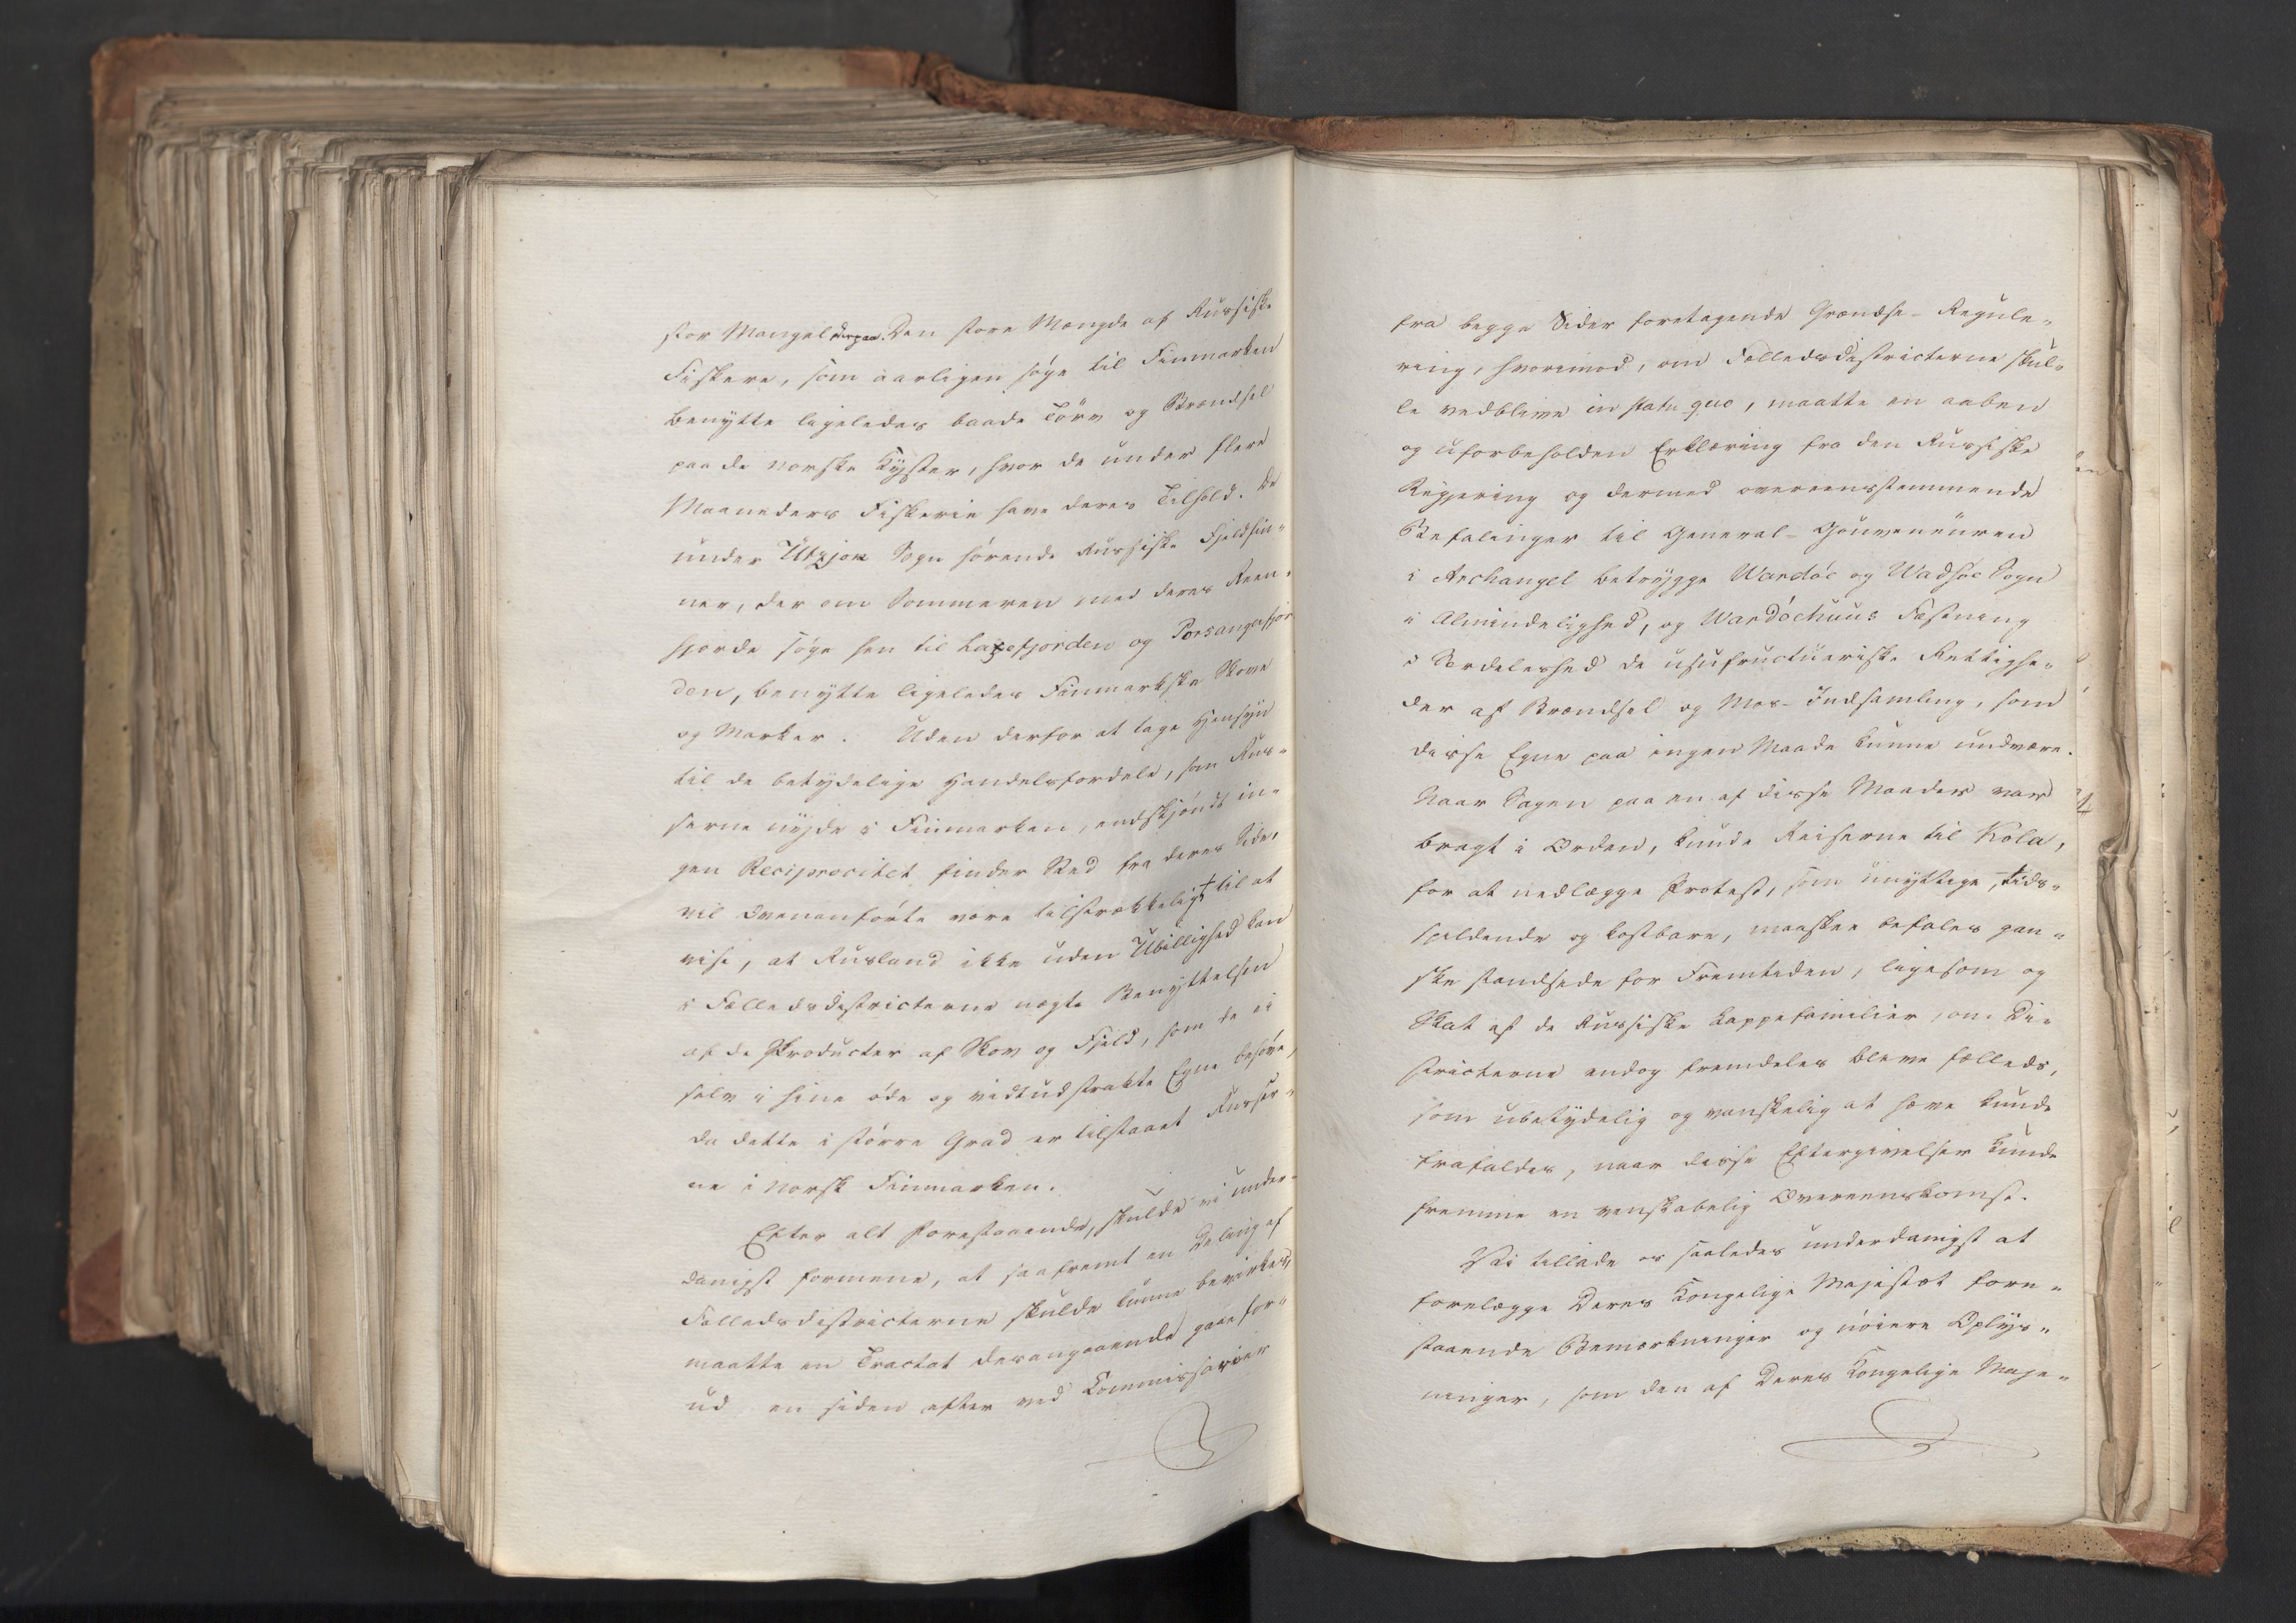 stor Mangel derpaa. Den store Mængde af Russiske
Fiskere, som aarligen søge til Finmarken
benytte ligeledes baade Törv og Brændsel
paa de norske Kyster, hvor de under flere
Maaneders Fiskerie have deres Tilhold. De
under Utzjok Sogn hørende Russiske Fjeldfin-
ner, der om Sommeren med deres Reen-
hjorde søge hen til Laxefjorden og Porsangerfjor
den, benytte ligeledes Finmarkske Skove
og Marker. Uden derfor at tage Hensyn
til de betydelige Handelsfordele, som Rus-
serne nyde i Finmarken, endskjøndt in-
gen Reciprocitet finder Sted fra deres Side,
vil Ovenanførte være tilstrækkeligt til at
vise, at Rusland ikke uden Ubillighed kan
i Fælledsdistricterne nægte Benyttelsen
af de Producter af Skov og Fjeld, som de ei
selv i hine øde og vidtudstrakte Egne behøve,
da dette i større Grad er tilstaaet Russer-
ne i norsk Finmarken.
Efter alt Forestaaende, skulde vi under-
danigst formene, at saafremt en Deling af
Fælledsdistricterne skulde kunne bevirkes,
maatte en Tractat derangaaende gaae for-
ud en siden efter ved Commissarier
fra begge Sider foretagende Grændse-Regule-
ring, hvorimod, om Fælledsdistricterne skul-
le vedblive in statu quo, maatte en aaben
og uforbeholden Erklæring fra den Russiske
Regjering og dermed overeensstemmende
Befalinger til General-Gouverneuren
i Archangel betrygge Wardöe og Wadsöe Sogn
i Almindelighed, og Wardöehuus Fæstning
i Særdeleshed de usufructuariske Rettighe-
der af Brændsel og Mos-Indsamling, som
disse Egne paa ingen Maade kunne undvære.
Naar Sagen paa en af disse Maader var
bragt i Orden, kunde Reiserne til Kola,
for at nedlægge Protest, som unyttige, tids-
spildende og kostbare, maaskee befales gan-
ske standsede for Fremtiden, ligesom og
Skat af de Russiske Lappefamilier, om Di-
stricterne endog fremdeles bleve fælleds,
som ubetydelig og vanskelig at hæve kunde
frafaldes, naar disse Eftergivelser kunde
fremme en venskabelig Overeenskomst.
Vi tillade os saaledes underdanigst at
forelægge Deres Kongelige Majestæt fore-
staaende Bemærkninger og nöiere Oplys-
ninger, som den af Deres Kongelige Maje-